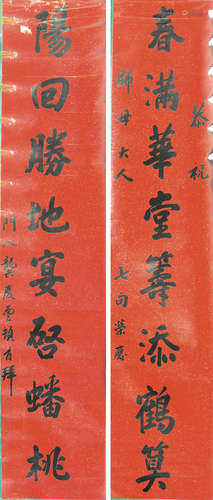 恭祝
師母大人 七旬榮慶
春滿華堂籌添鶴算
陽回勝地宴啓蟠桃
門人龔慶雲頓首拜